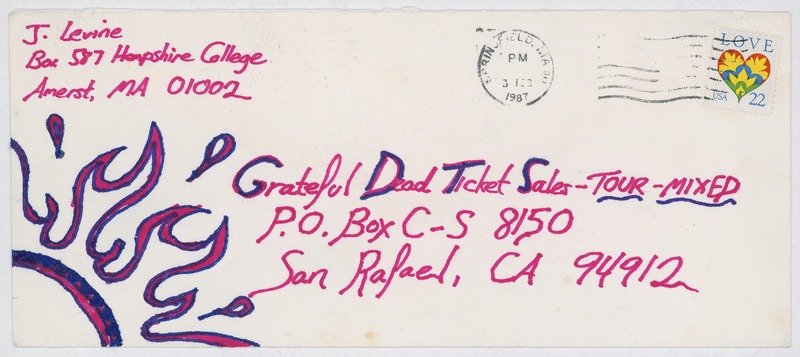 J. Levine
Box 587 Hampshire College
Amerst, MA 01002
SPRINGFIELD, MA
PM
3 FEB
1987
LOVE
USA 22
Grateful Dead Ticket Sales - TOUR - MIXED
P.O. Box C-S 8150
San Rafael, CA 94912